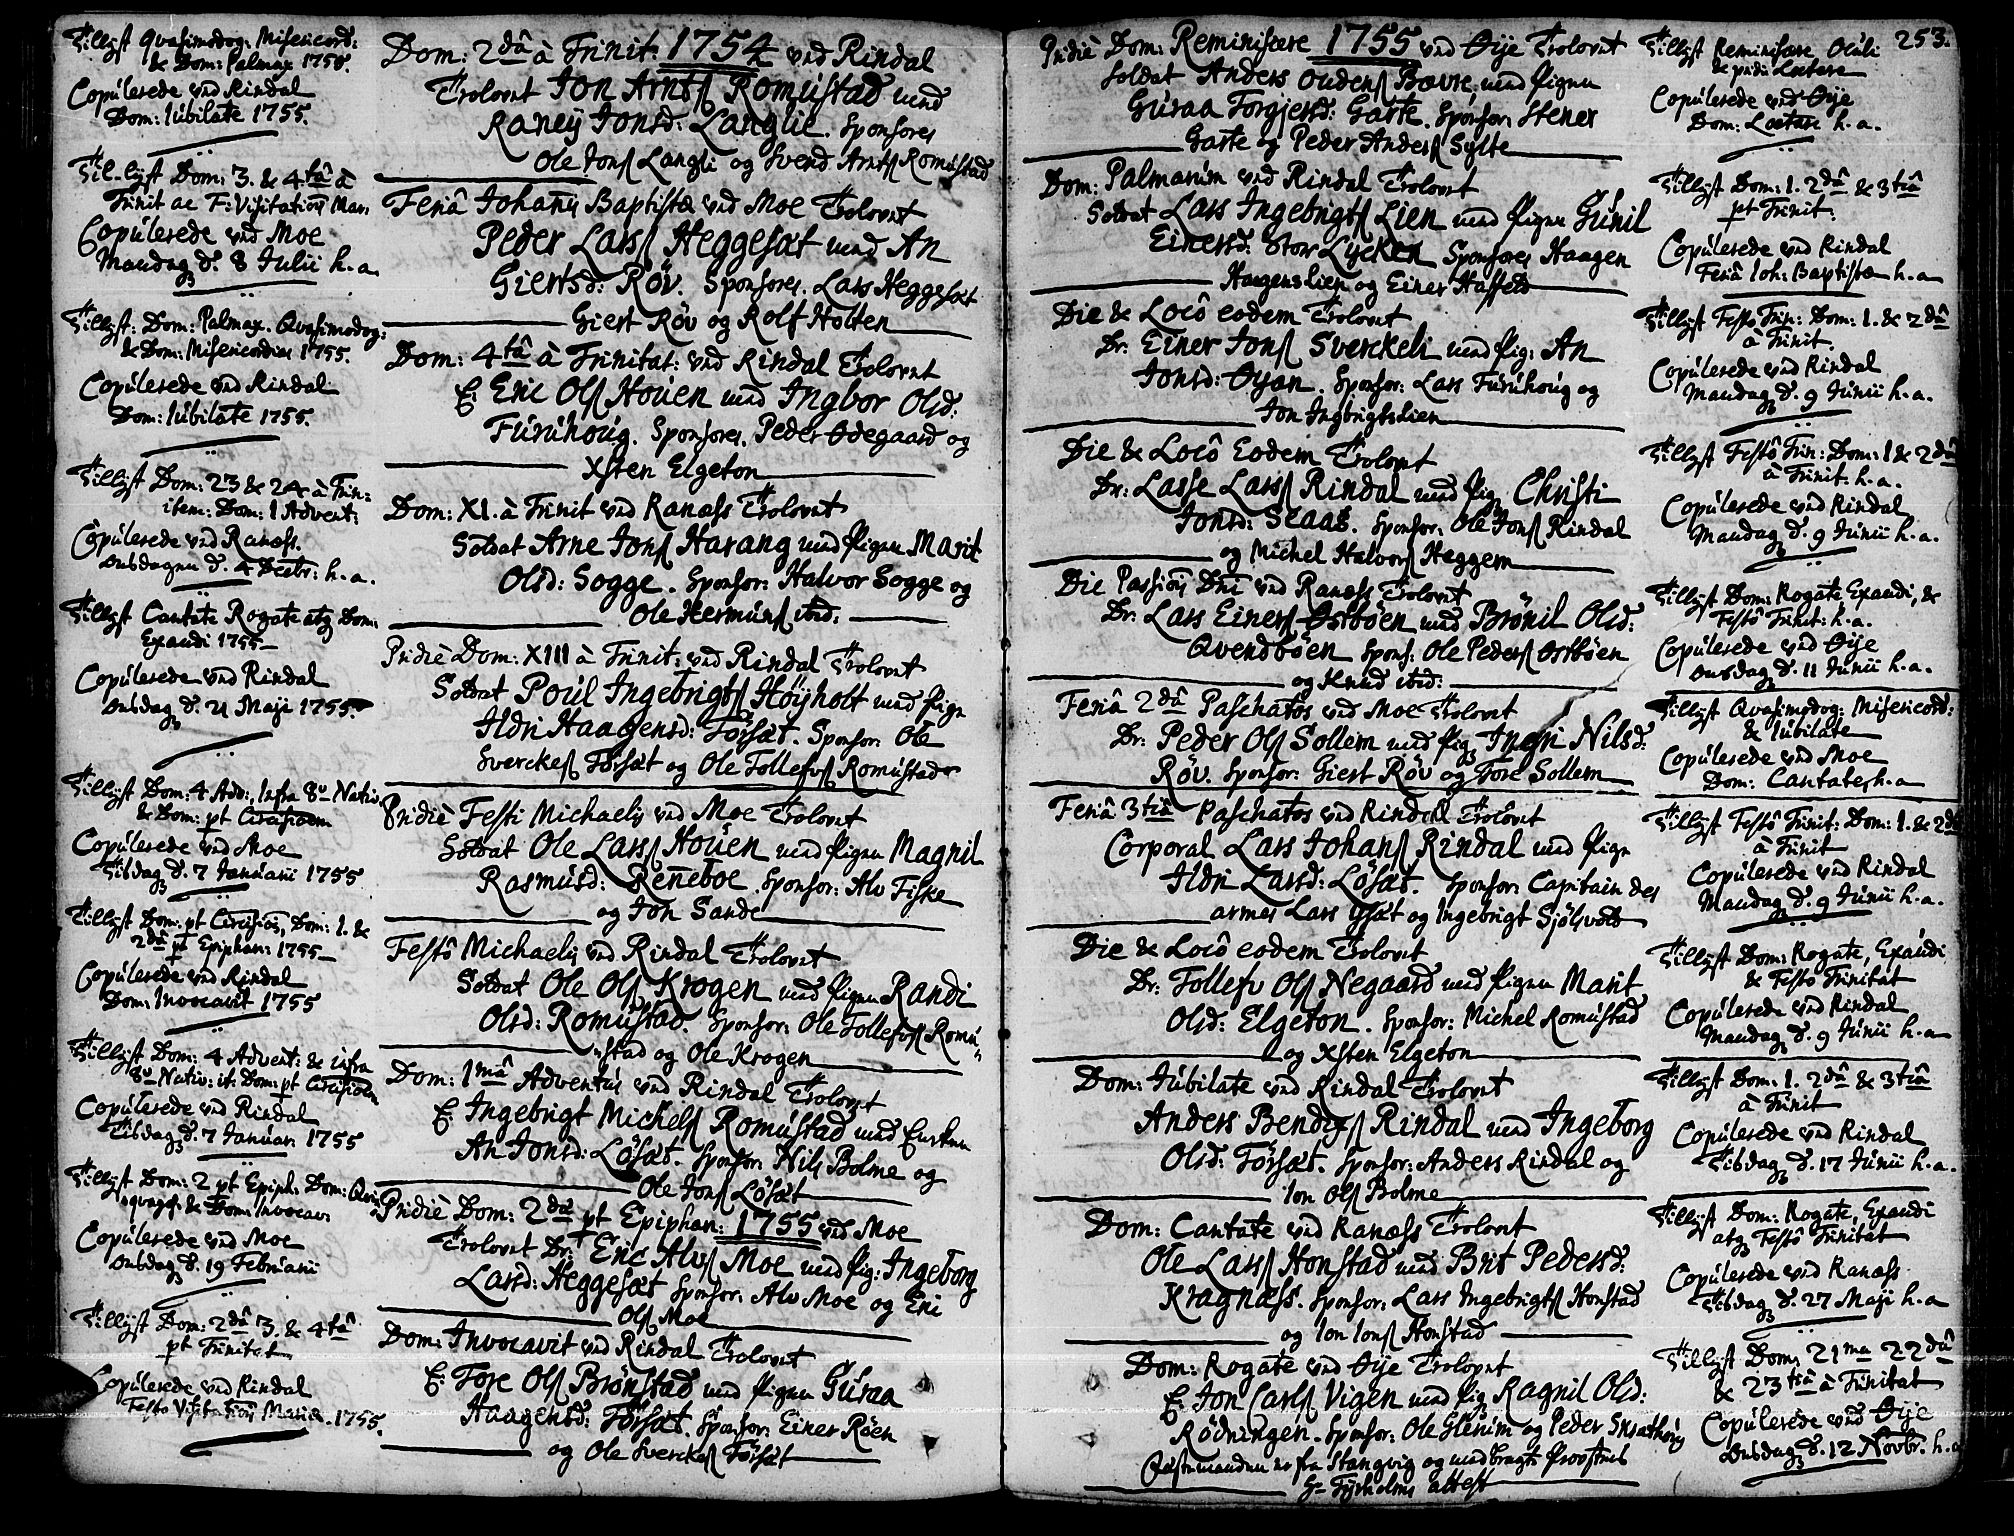 Tillyst Qvasimodog: Misericord:
& Dom: Palmar 1755.
Copulerede ved Rindal
Dom: Iubilate 1755.
Til-lyst Dom: 3. & 4tâ à
Trinit ac F. Visitation Mar:
Copulerede ved Moe
Mandag d. 8 Julii h.a.
Tillyst: Dom: Palmar. Qvasimodog:
& Dom: Misericordiæ 1755.
Copulerede ved Rindal
Dom: Iubilate 1755.
Tillyst Dom: 23 & 24 à Trin:
item: Dom: 1 Advent:
Copulerede ved Ranæss.
Onsdagen d. 4 Decbr: h.a.
Tillyst Cantate Rogate atq Dom:
Exaudi 1755
Copulerede ved Rindal
Onsdag d. 21 Maji 1755.
Tillyst Dom: 4 Adv:, Infra 8v Nativ:
& Dom: pt Circisionem
Copulerede ved Moe
Tisdag d. 7 Januarii 1755
Tillyst Dom: pt Circisiois, Dom: 1. &
2dâ pt Epiphan: 1755
Copulerede ved Rindal
Dom: Invocavit 1755
Tillyst Dom: 4 Advent: & infra
8v Nativ: it: Dom: pt Circisionem
Copulerede ved Rindal
Tisdag d. 7 Januari 1755
Tillyst Dom: 2 pt Epiph: Dom: Qvin-
qvages: & Dom: Invocav:
Copulerede ved Moe
Onsdag d. 19 Februarii
Tillyst Dom: 2dâ 3. & 4tâ
pt Trinitat
Copulerede ved Rindal
Festo Visitation Mariæ. 1755.
Dom: 2dâ à Trinit: 1754 ved Rindal
Trolovet Jon Arnts Romustad med
Raney Jonsd: Langlie. Sponsores
Ole Jons Langli og Svend Arnts Romustad
Feriâ Johanis Baptistæ ved Moe Trolovet
Peder Lars Heggesæt med An
Giertsd: Röv. Sponsores. Lars Heggesæt
Giert Röv og Rolf Holten
Dom: 4tâ à Trinitat: ved Rindal Trolovet
E: Eric Ols Houen med Ingbor Olsd:
Furuhoug. Sponsores. Peder Ödegaard og
Xsten Elgeton
Dom: XI. à Trinit ved Ranæss Trolovet
Soldat Arne Jons Harang med Pigen Marit
Olsd: Sogge. Sponsor: Halvor Sogge og
Ole Hermuns ibid:
Pridiè Dom: XIII à Trinit: ved Rindal Trolovet
Soldat Poul Ingebrigts Höyholt med Pign
Ildri Haagensd: Forsæt. Sponsor: Ole
Sverckes Forsæt og Ole Tollefs Romustad
Pridiè Festi Michaelis ved Moe Trolovet
Soldat Ole Lars Houen med Pigen Magnil
Rasmusd: Renneboe. Sponsor: Alv Fiske
og Jon Sande
Festô Michaelis ved Rindal Trolovet
Soldat Ole Ols Krogen med Pigen Randi
Olsd: Romustad. Sponsor: Ole Tollefs Romu-
stad og Ole Krogen
Dom: 1mâ Adventus ved Rindal Trolovet
E: Ingebrigt Michels Romustad med Enken
An Jonsd: Lösæt. Sponsor: Nils Bolme og
Ole Jons Lösæt
Pridiè Dom: 2dâ pt Epiphan: 1755 ved Moe
Trolovet Dr: Eric Alvs Moe med Pig: Ingeborg
Larsd: Heggesæt Sponsor: Alv Moe og Eric
Ols Moe
Dom: Invocavit ved Rindal Trolovet
E: Tore Ols Brönstad med Pigen Guraa
Haagensd: Forsæt. Sponsor: Einer Röen
og Ole Sverckes Forsæt
Pridiè Dom: Reminiscere 1755 ved Öije Trolovet
Soldat Anders Oudens Bævre med Pigen
Guraa Torgjersd: Garte. Sponsor: Stener
Garte og Peder Anders Sylte
Dom: Palmarum ved Rindal Trolovet
Soldat Lars Ingebrigts Lien med Pigen Gunil
Einersd: Stor Lycken Sponsores Haagen
Haagenslien og Einer Hasseld
Die & Locô eodem Trolovet
Dr: Einer Jons Sverckeli med Pig: An
Jonsd: Öyan. Sponsor: Lars Furuhoug og
Jon Ingbrigtslien
Die & Locô Eodem Trolovet
Dr: Lasse Lars Rindal med Pig Christi
Jonsd: Staas. Sponsor: Ole Jons Rindal
og Michel Halvors Heggem
Die Passiois Dni ved Ranæss Trolovet
Dr: Lars Einers Östböen med Brönil Olsd:
Qvendböen Spons: Ole Peders Östböen
og Knud ibid:
Feriâ 2dâ Paschatos ved Moe Trolovet
Dr: Peder Ols Sollem med Pig Ingri Nilsd:
Röv. Sponsor: Giert Röv og Tore Sollem
Feriâ 3tiâ Paschatos ved Rindal Trolovet
Corporal Lars Johans Rindal med Pign
Ildri Larsd: Lösæt. Sponsor: Capitain des
armes Lars Gsæt og Ingebrigt Sjölsvold
Die & Locô eodem Trolovet
Dr: Tollefv Ols Negaard med Pigen Marit
Olsd: Elgeton. Sponsor: Michel Romustad
og Xsten Elgeton
Dom: Jubilate ved Rindal Trolovet
Anders Bendixs Rindal med Ingeborg
Olsd: Forsæt. Sponsor: Anders Rindal og
Ion Ols Bolme
Dom: Cantate ved Ranæss Trolovet
Ole Lars Honstad med Brit Pedersd:
Kragnæss. Sponsor: Lars Ingebrigts Honstad
og Ion Ions Honstad
Dom: Rogate ved Öije Trolovet
E: Jon Carls Vigen med Pig Ragnil Olsd:
Rödningen. Sponsor: Ole Glærum og Peder
Festemanden er fra Stangvig og medbragte Provstens
Hr Tyrholms attest
253.
Tillyst Reminiscere Oculi
& pridiè Lætare
Copulerede ved Öije
Dom: Lætare h.a.
Tillyst Dom: 1. 2dâ & 3tiâ
pt Trinit.
Copulerede ved Rindal
Feriâ Ioh: Baptistæ h.a
Tillyst Festo Trin: Dom: 1. & 2dâ
à Trinit.
Copulerede ved Rindal
Mandag d. 9 Junii h.a.
Tillyst Festô Trin: Dom: 1 & 2dâ
à Trinit. h.a.
Copulerede ved Rindal
Mandag d. 9 Junii h.a.
Tillyst Dom: Rogate Exaudi, &
Festô Trinit: h.a.
Copulerede ved Öije
Onsdag d. 11 Junii h.a.
Tillyst Qvasimodog: Misericord:
& Iubilate
Copulerede ved Moe
Dom: Cantate h.a
Tillyst Festô Trinit: Dom: 1. & 2dâ
à Trinit
Copulerede ved Rindal
Mandag d. 9 Junii h.a.
Tillyst Dom: Rogate, Exaudi
& Festô Trinitat
Copulerede ved Rindal
Mandag d. 9 Junii h.a
Tillyst Dom: 1. 2dâ & 3tiâ
à Trinit
Copulerede ved Rindal
Tisdag d. 17 Junii h.a.
Tillyst Dom: Rogate, Exaudi
atq Festô Trinitat
Copulerede ved Ranæss
Tisdag d. 27 Maji h.a
Tillyst Dom: 21ma 22dâ
& 23tiâ à Trinitat
Copulerede ved Öije
Onsdag d. 12 Novbr. h.a